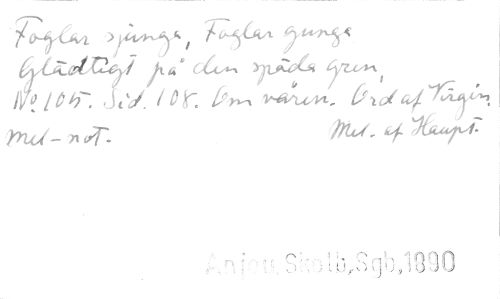 Foglar sjunga, Foglar gunga
Gladtigt på den späda gren,
No. 105. Sid. 108. Om våren. Ord af Virgin.
Mel-not. Mel. af Haupt.
Anjou, Skolb, Sgb, 1890